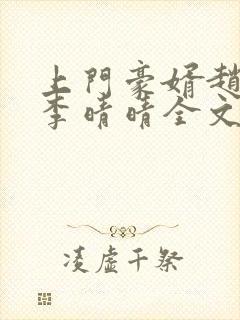 上門豪婿趙
李晴晴全文
凌虛千祭